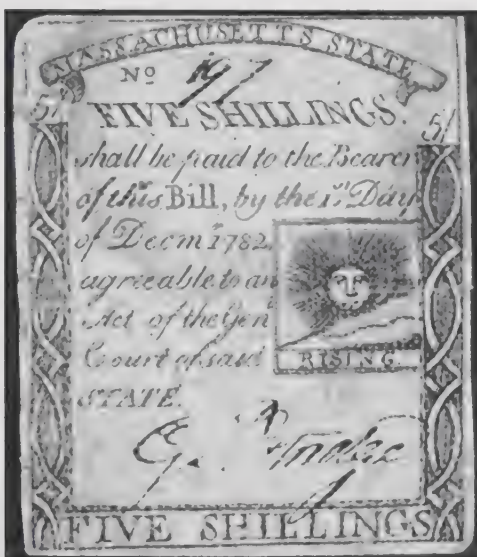 MASSACHUSETTS STATE
No 197
5/ FIVE SHILLINGS. 5/
shall be paid to the Bearer
of this Bill, by the 1st Day
of Decmr 1782
agreeable to an
Act of the Genl
Court of said
STATE.
RISING
FIVE SHILLINGS